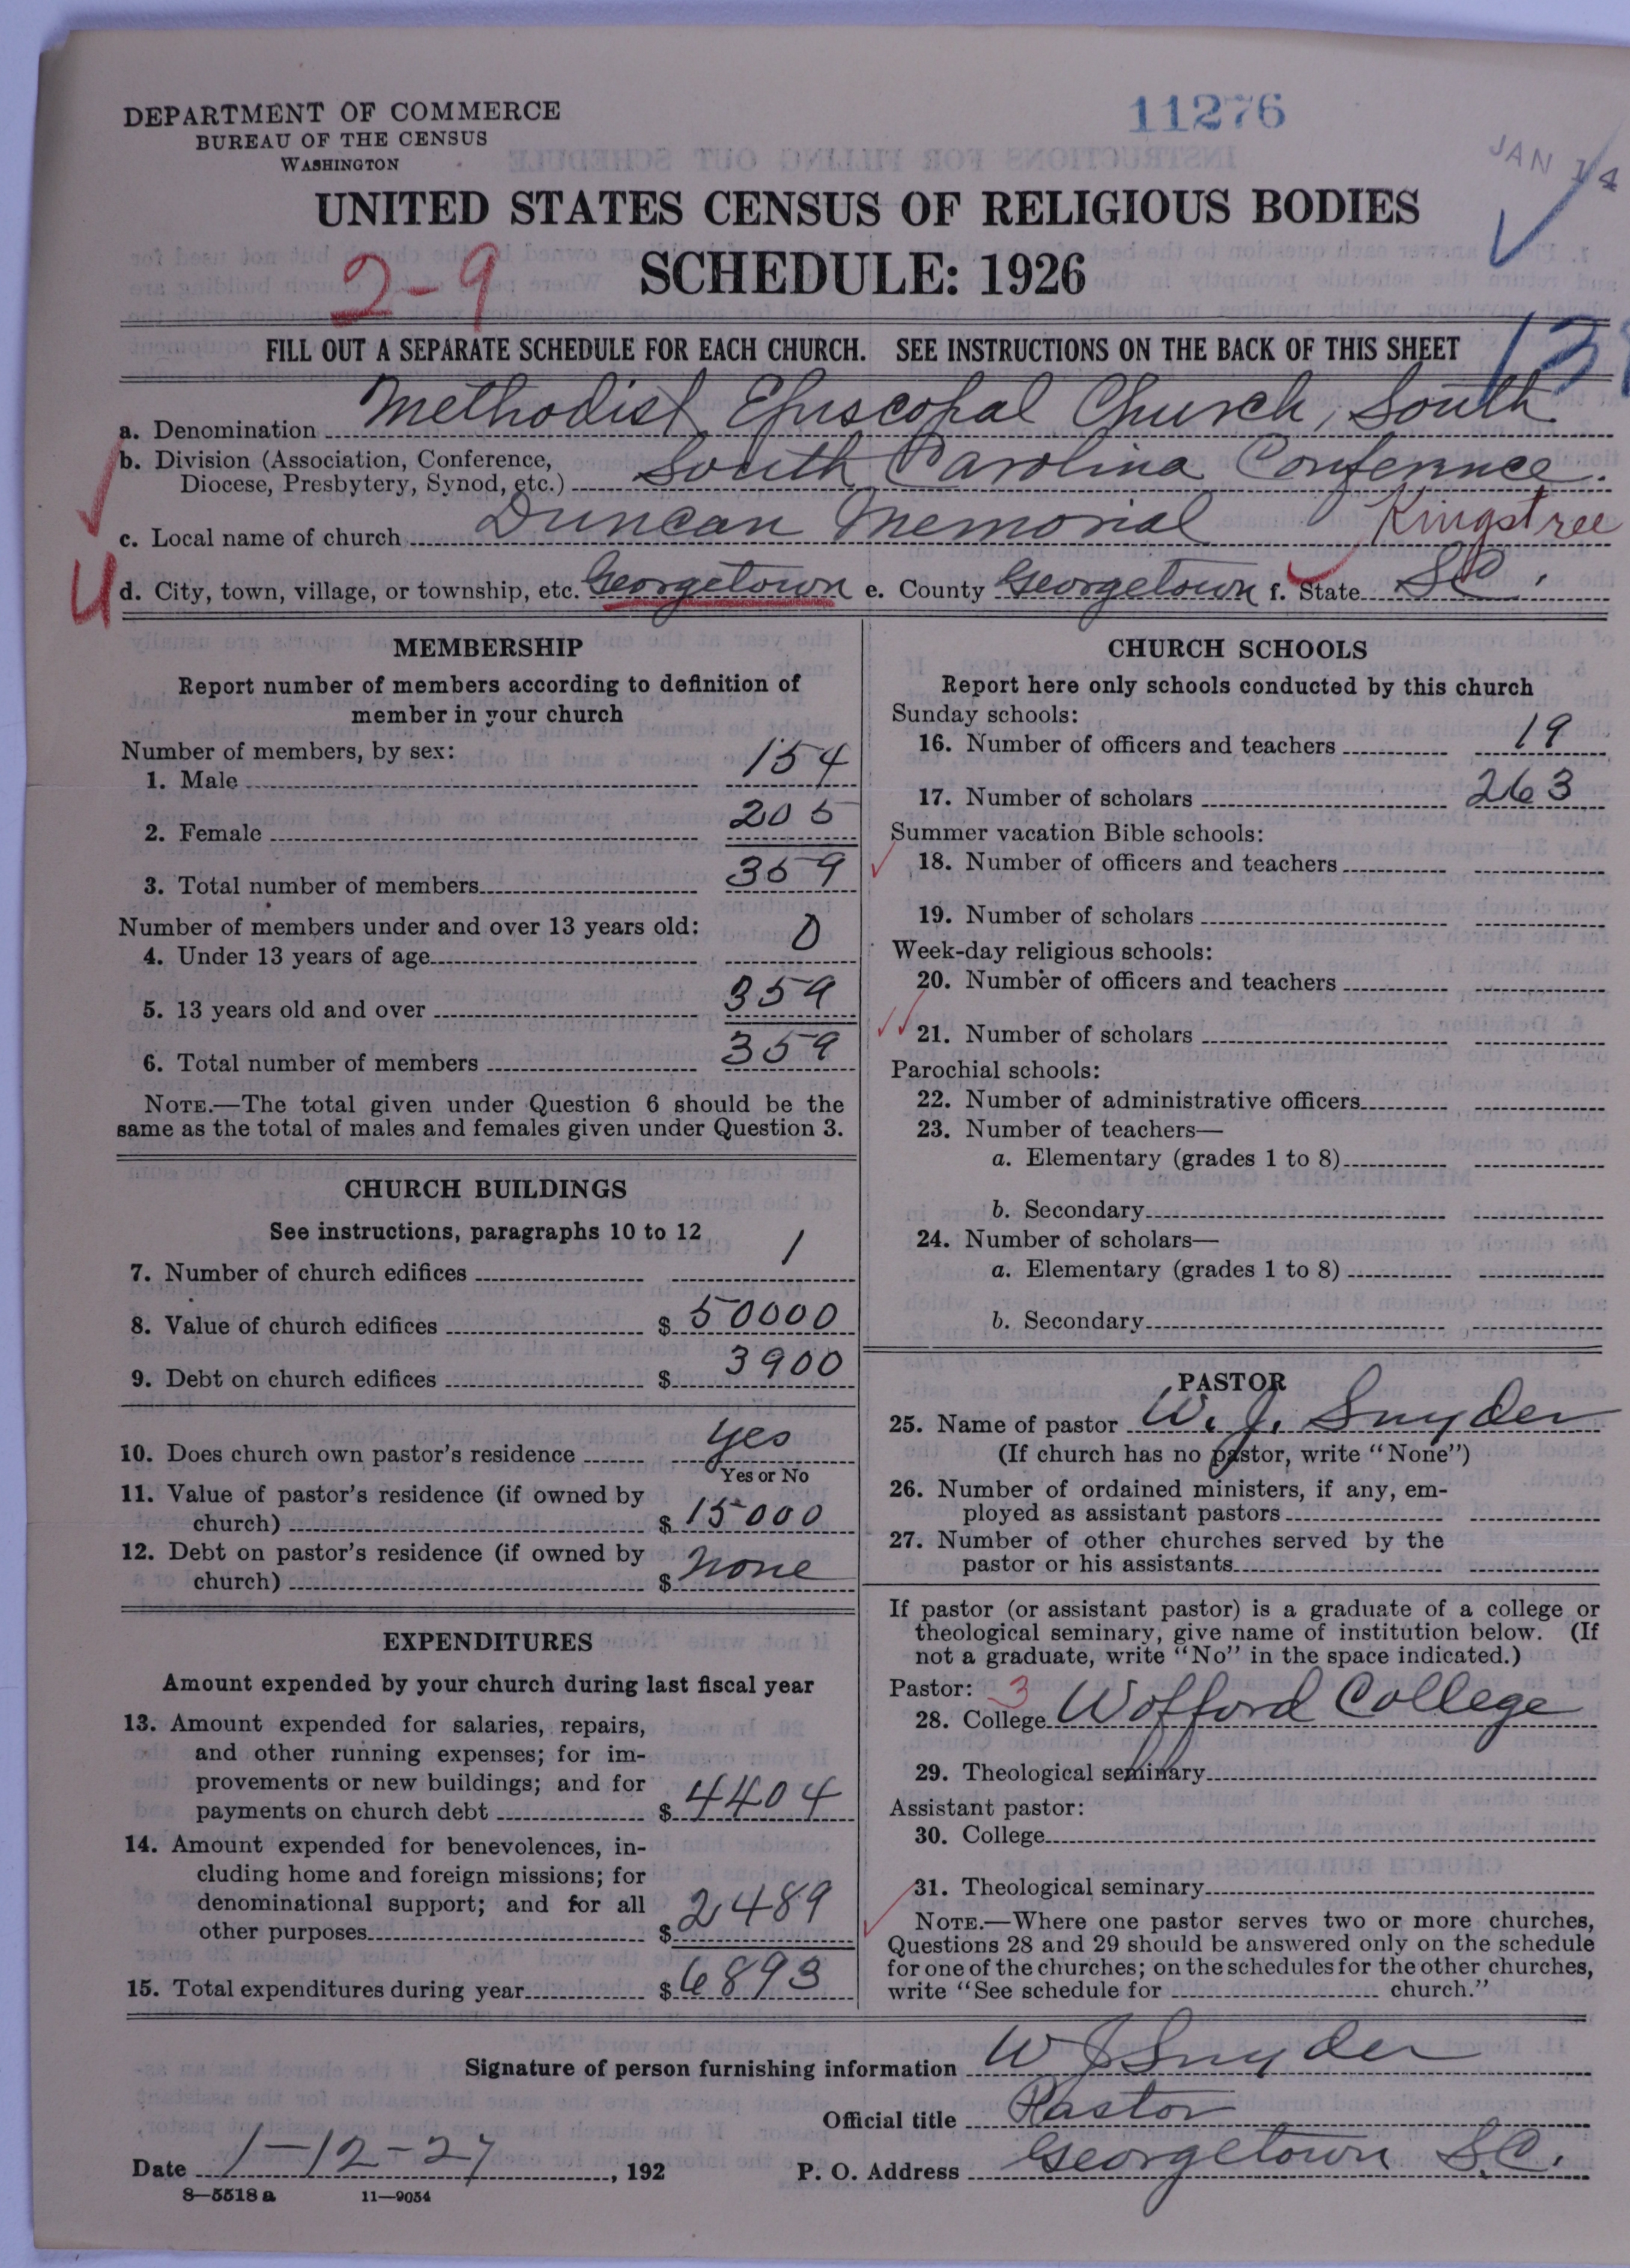 DEPARTMENT OF COMMERCE
BUREAU OF THE CENSUS
WASHINGTON
11276
JAN 14
UNITED STATES CENSUS OF RELIGIOUS BODIES
2-9
SCHEDULE: 1926
FILL OUT A SEPARATE SCHEDULE FOR EACH CHURCH. SEE INSTRUCTIONS ON THE BACK OF THIS SHEET
a. Denomination Methodist Episcopal Church, South
b. Division (Association, Conference,
Diocese, Presbytery, Synod, etc.) South Carolina Conference.
c. Local name of church Duncan Memorial Kingstree
U
d. City, town, village, or township, etc. Georgetown e. County Georgetown f. State SC.
MEMBERSHIP
Report number of members according to definition of
member in your church
Number of members, by sex:
1. Male 154
2. Female 205
3. Total number of members 359
Number of members under and over 13 years old:
4. Under 13 years of age 0
5. 13 years old and over 359
6. Total number of members 359
NOTE.—The total given under Question 6 should be the
same as the total of males and females given under Question 3.
CHURCH BUILDINGS
See instructions, paragraphs 10 to 12
7. Number of church edifices 1
8. Value of church edifices $ 50000
9. Debt on church edifices $ 3900
10. Does church own pastor's residence yes
Yes or No
11. Value of pastor's residence (if owned by
church) $ 15000
12. Debt on pastor's residence (if owned by
church) $ none
EXPENDITURES
Amount expended by your church during last fiscal year
13. Amount expended for salaries, repairs,
and other running expenses; for im-
provements or new buildings; and for
payments on church debt $ 4404
14. Amount expended for benevolences, in-
cluding home and foreign missions; for
denominational support; and for all
other purposes $ 2489
15. Total expenditures during year $ 6893
CHURCH SCHOOLS
Report here only schools conducted by this church
Sunday schools:
16. Number of officers and teachers 19
17. Number of scholars 263
Summer vacation Bible schools:
18. Number of officers and teachers
19. Number of scholars
Week-day religious schools:
20. Number of officers and teachers
21. Number of scholars
Parochial schools:
22. Number of administrative officers
23. Number of teachers—
a. Elementary (grades 1 to 8)
b. Secondary
24. Number of scholars—
a. Elementary (grades 1 to 8)
b. Secondary
PASTOR
25. Name of pastor W. J. Snyder
(If church has no pastor, write "None")
26. Number of ordained ministers, if any, em-
ployed as assistant pastors
27. Number of other churches served by the
pastor or his assistants
If pastor (or assistant pastor) is a graduate of a college or
theological seminary, give name of institution below. (If
not a graduate, write "No" in the space indicated.)
Pastor: 3
28. College Wofford College
29. Theological seminary
Assistant pastor:
30. College
31. Theological seminary
NOTE.—Where one pastor serves two or more churches,
Questions 28 and 29 should be answered only on the schedule
for one of the churches; on the schedules for the other churches,
write "See schedule for church."
Signature of person furnishing information W J Snyder
Official title Pastor
Date 1-12-27, 192 P. O. Address Georgetown S.C.
8—5518 a 11—9054